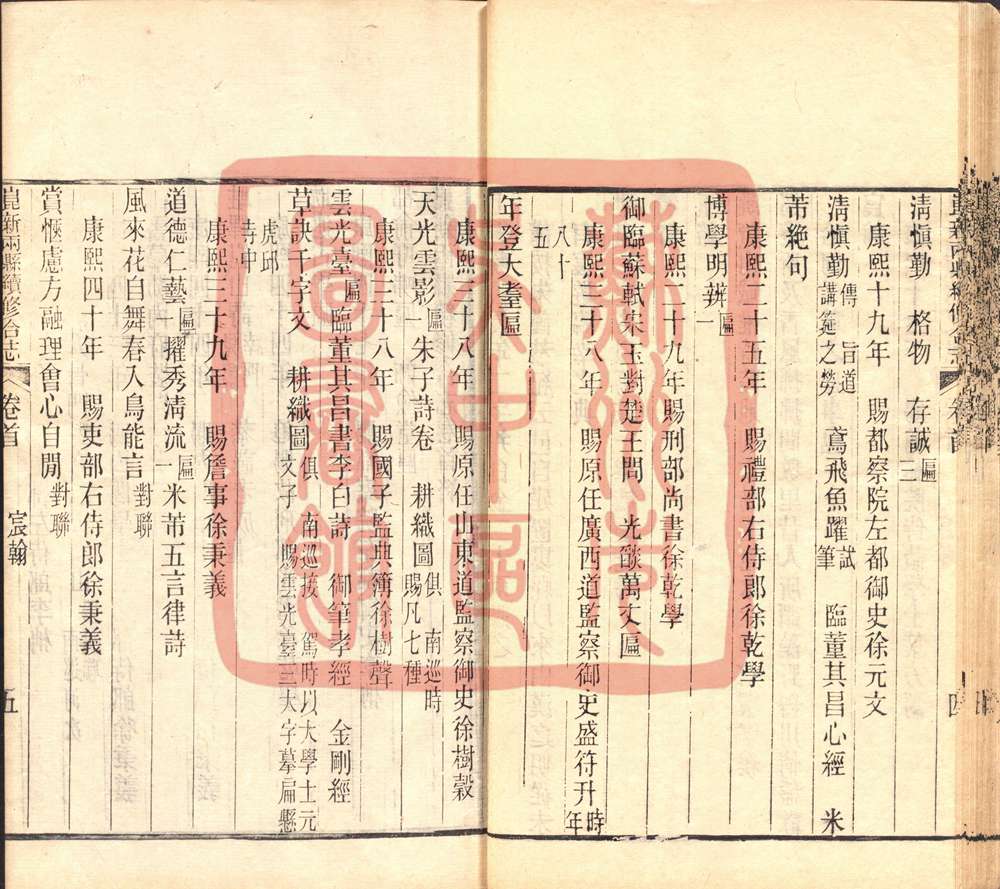 清愼勤　格物　存誠匾三
康熙十九年　賜都察院左都御史徐元文
清愼勤傳　旨道講筵之勞　鳶飛魚躍試筆　臨董其昌心經　米
芾絶句
康熙二十五年　賜禮部右侍郎徐乾學
博學明辨匾一
康熙二十九年賜刑部尚書徐乾學
御臨蘇軾宋玉對楚王問　光燄萬丈匾
康熙三十八年　賜原任廣西道監察御史盛符升時年
八十五
年登大耋匾
康熙三十八年　賜原任山東道監察御史徐樹穀
天光雲影匾一　朱子詩卷　耕織圖俱　南巡時賜凡七種
康熙三十八年　賜國子監典簿徐樹聲
雲光臺匾　臨董其昌書李白詩　御筆孝經　金剛經
草訣千字文　耕織圖俱　南巡接　駕時以大學士元文子　賜雲光臺三大字摹扁懸
虎邱寺中
康熙三十九年　賜詹事徐秉義
道德仁藝匾一　擢秀淸流匾一　米芾五言律詩
風來花自舞春入鳥能言對聯
康熙四十年　賜吏部右侍郎徐秉義
賞愜慮方融理會心自閒對聯
崑新兩縣續修合志　卷首　宸翰　五